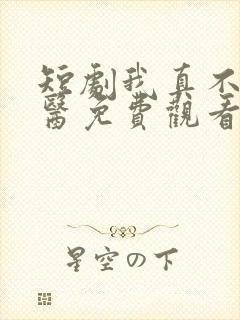 短劇我真不
醫免費觀看
星空の下